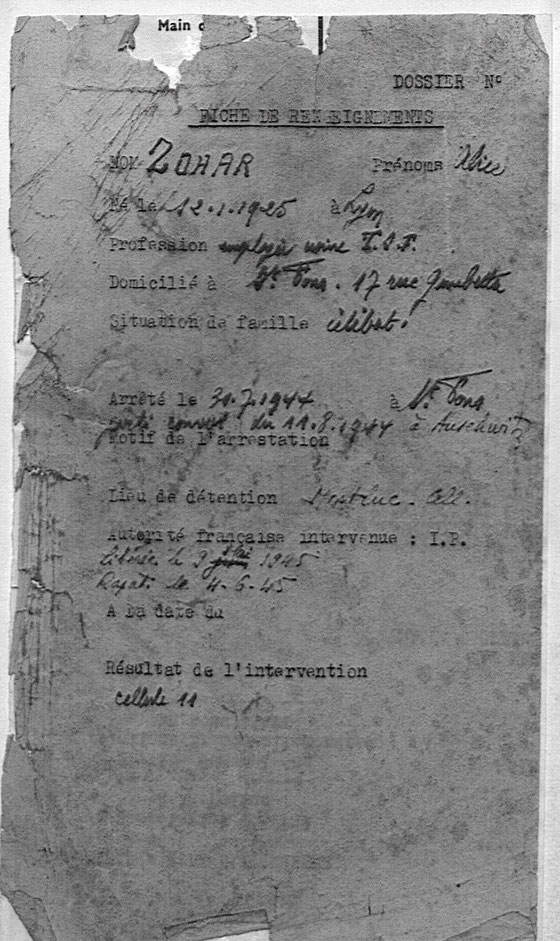 Main
DOSSIER N°
FICHE DE RENSEIGNEMENTS
NOM ZOHAR Prénoms Alice
Né le 12.1.1925 à Lyon
Profession employée usine T.S.F.
Domicilié à St Fons. 17 rue Gambetta
Situation de famille célibat.
Arrêté le 31.7.1944 à St Fons
convoi du 11.8.1944 à Auschwitz
Motif de l'arrestation
Lieu de détention Montluc - All.
Autorité française intervenue : I.P.
Libérée le 9 1945
Rapat. le 4-6-45
A la date du
Résultat de l'intervention
cellule 11